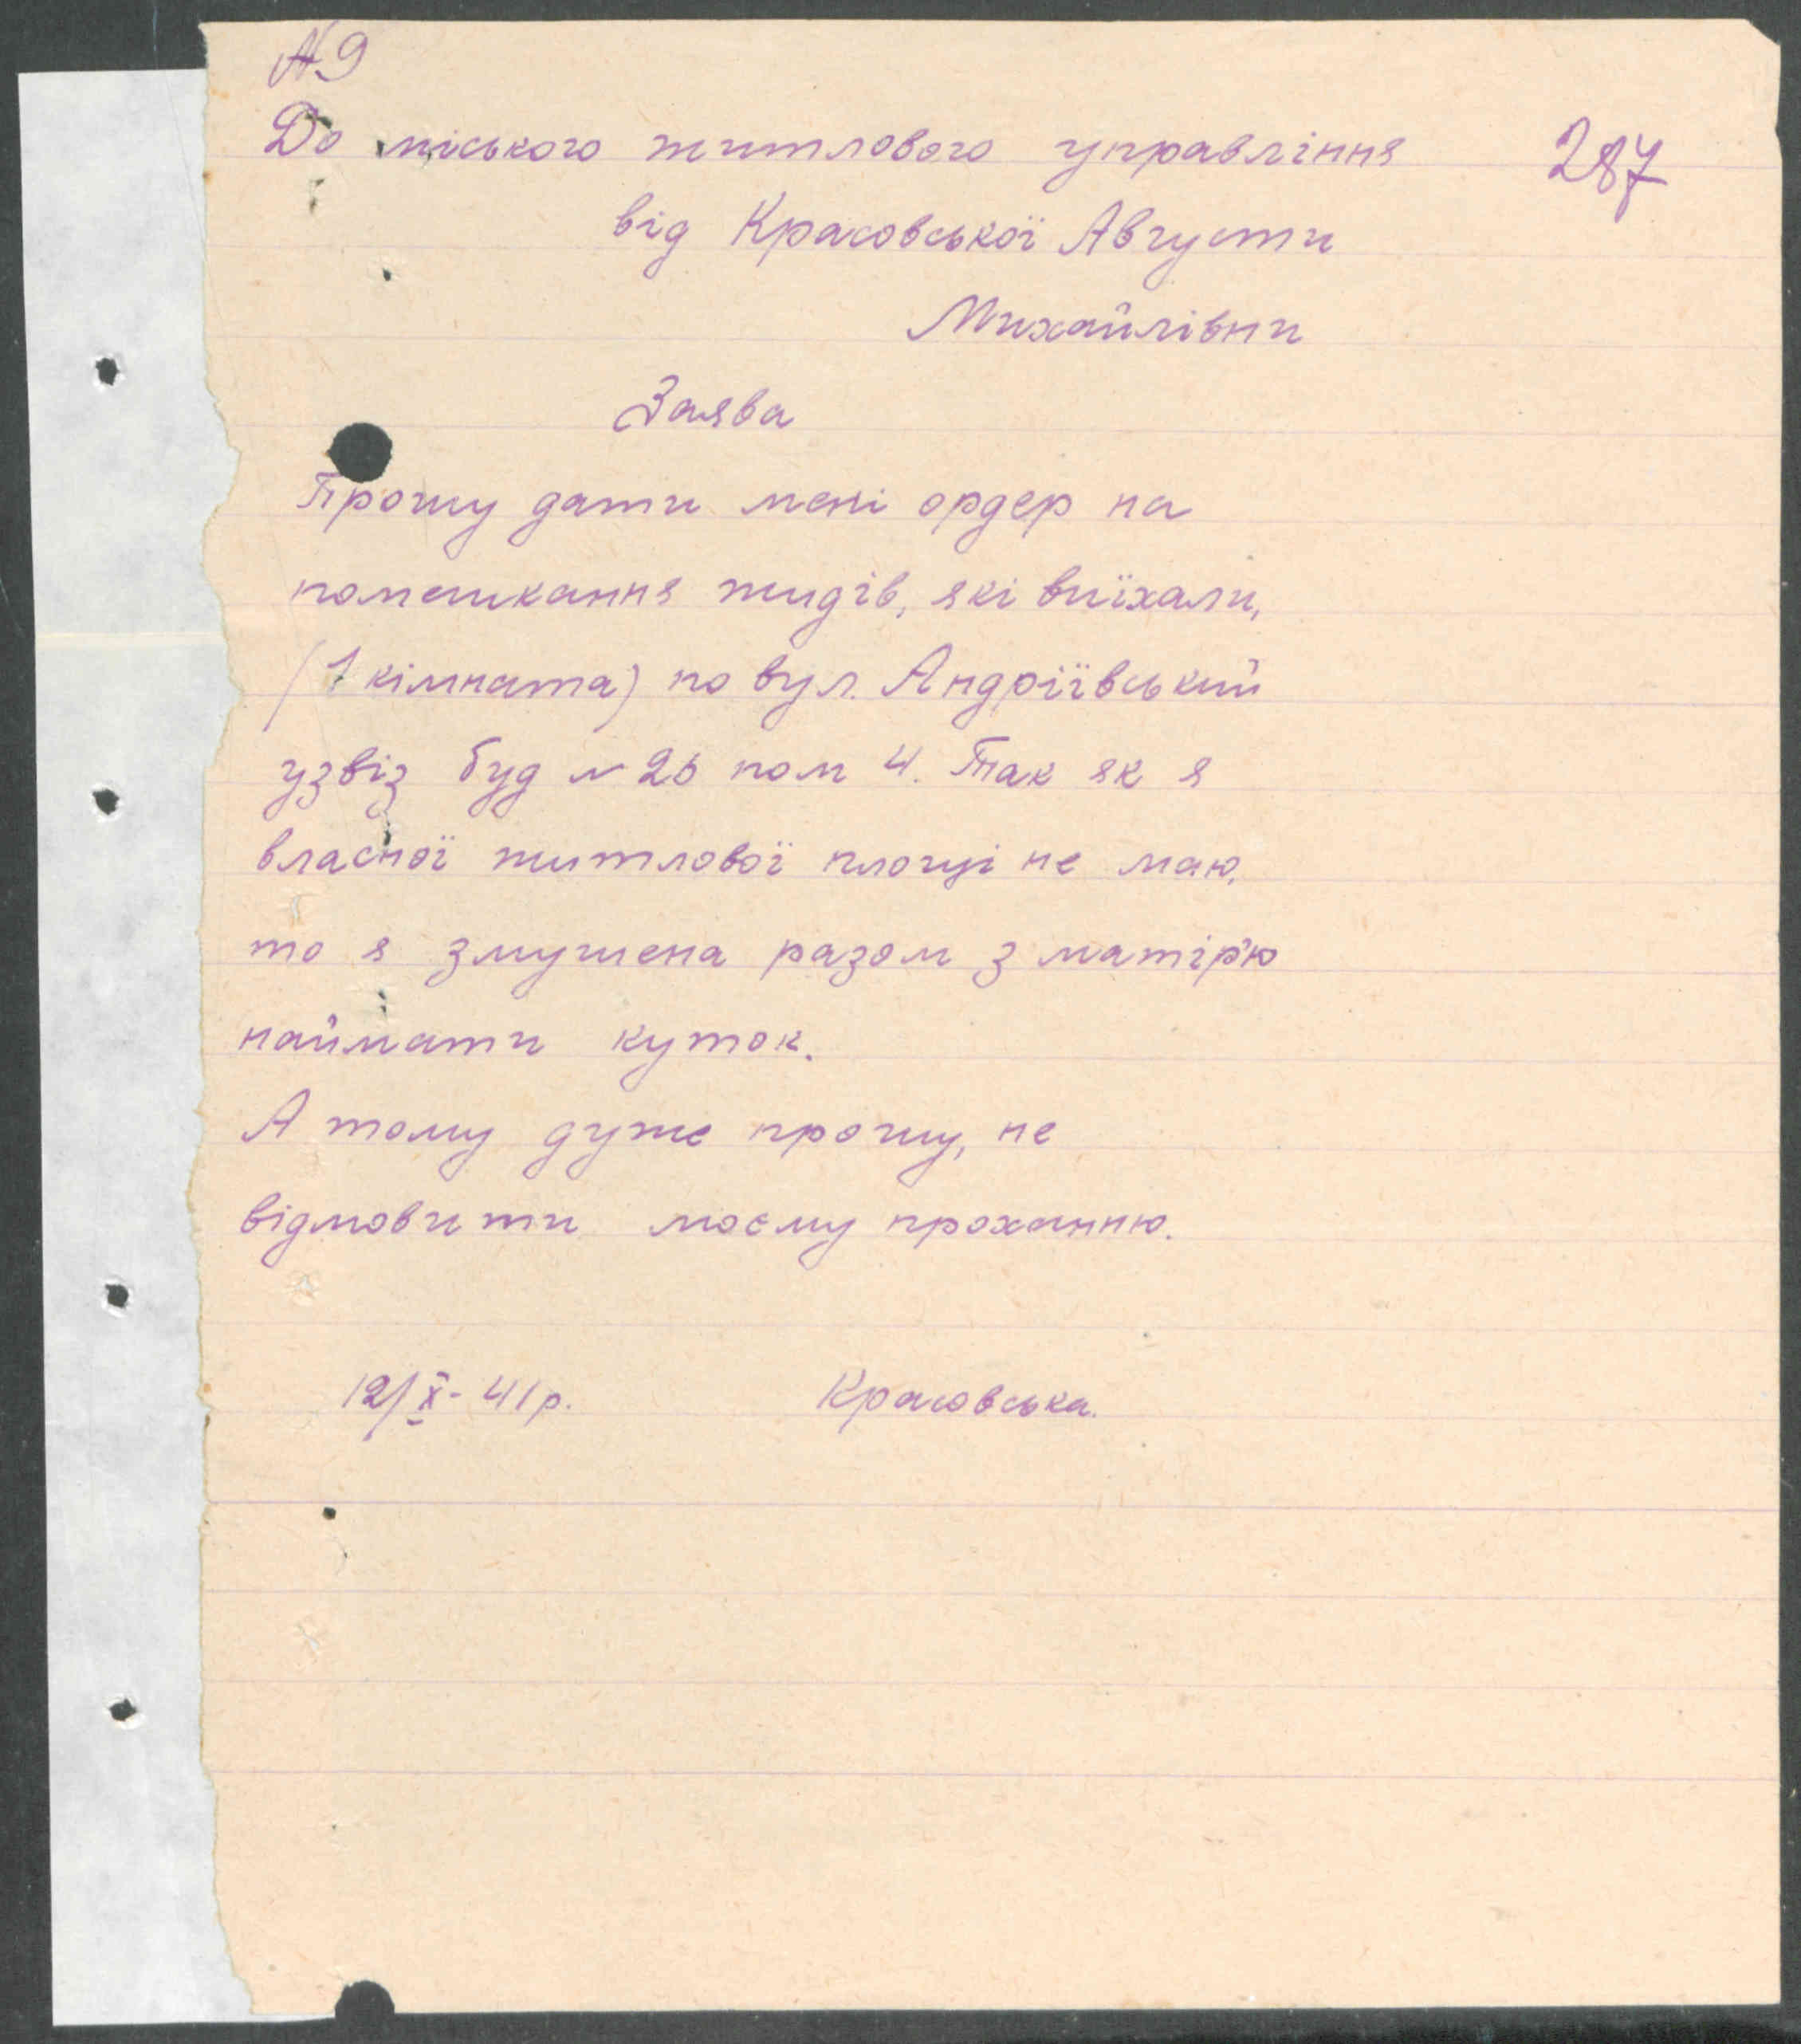 №9
До міського житлового управління 287
від Красовської Августи
Михайлівни
Заява
Прошу дати мені ордер на
помешкання жидів, які виїхали,
(1 кімната) по вул. Андріївський
узвіз буд № 26 пом 4. Так як я
власної житлової площі не маю,
то я змушена разом з матір'ю
наймати куток.
А тому дуже прошу, не
відмовити моєму проханню.
12/X-41р. Красовська.